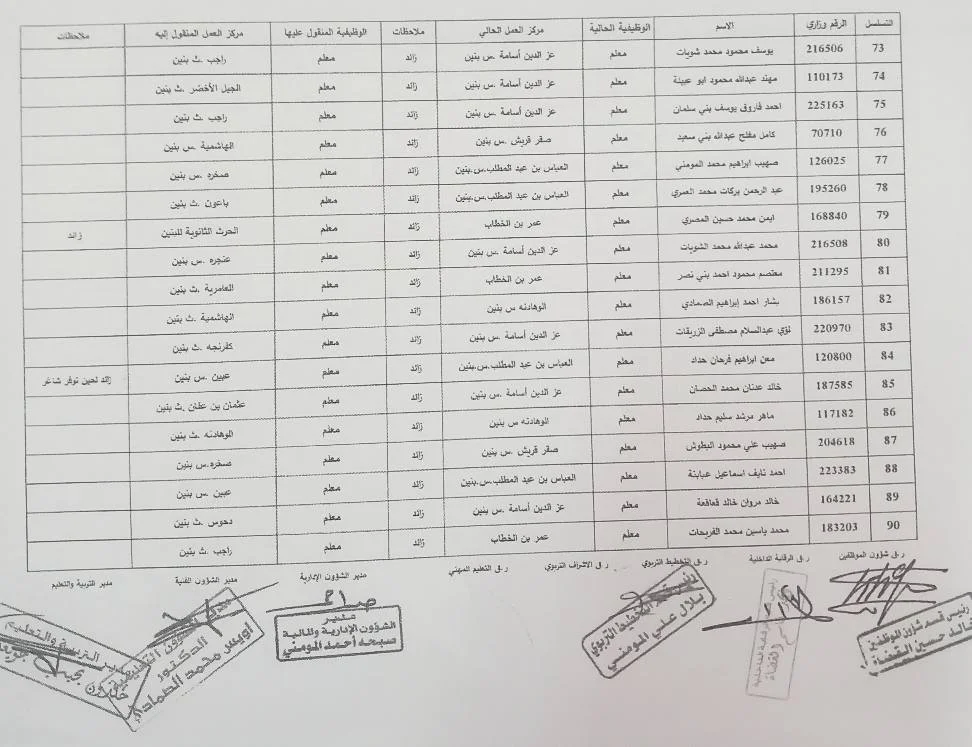 التسلسل الرقم وزاري الاسم الوظيفية الحالية مركز العمل الحالي ملاحظات الوظيفية المنقول عليها مركز العمل المنقول إليه ملاحظات
73 216506 يوسف محمود محمد شويات معلم عز الدين أسامة .س بنين زائد معلم راجب .ث بنين
74 110173 مهند عبدالله محمود ابو عبيلة معلم عز الدين أسامة .س بنين زائد معلم الجيل الأخضر .ث بنين
75 225163 احمد فاروق يوسف بني سلمان معلم عز الدين أسامة .س بنين زائد معلم راجب .ث بنين
76 70710 كامل مفلح عبدالله بني سعيد معلم صقر قريش .س بنين زائد معلم الهاشمية .س بنين
77 126025 صهيب ابراهيم محمد المومني معلم العباس بن عبد المطلب.س.بنين زائد معلم صخره .س بنين
78 195260 عبد الرحمن بركات محمد العمري معلم العباس بن عبد المطلب.س.بنين زائد معلم باعون .ث بنين
79 168840 ايمن محمد حسين المصري معلم عمر بن الخطاب زائد معلم الحرث الثانوية للبنين زائد
80 216508 محمد عبدالله محمد الشويات معلم عز الدين أسامة .س بنين زائد معلم عنجره .س بنين
81 211295 معتصم محمود احمد بني نصر معلم عمر بن الخطاب زائد معلم العامرية .ث بنين
82 186157 بشار احمد إبراهيم الصمادي معلم الوهادنه س بنين زائد معلم الهاشمية .ث بنين
83 220970 لؤي عبدالسلام مصطفى الزريقات معلم عز الدين أسامة .س بنين زائد معلم كفرنجه .ث بنين
84 120800 معن ابراهيم فرحان حداد معلم العباس بن عبد المطلب.س.بنين زائد معلم عبين .س بنين زائد لحين توفر شاغر
85 187585 خالد عدنان محمد الحصان معلم عز الدين أسامة .س بنين زائد معلم عثمان بن عفان .ث بنين
86 117182 ماهر مرشد سليم حداد معلم الوهادنه س بنين زائد معلم الوهادنه .ث بنين
87 204618 صهيب علي محمود البطوش معلم صقر قريش .س بنين زائد معلم صخره.س بنين
88 223383 احمد نايف اسماعيل عبابنة معلم العباس بن عبد المطلب.س.بنين زائد معلم عبين .س بنين
89 164221 خالد مروان خالد قعاقعة معلم عز الدين أسامة .س بنين زائد معلم دحوس .ث بنين
90 183203 محمد ياسين محمد الفريحات معلم عمر بن الخطاب زائد معلم راجب .ث بنين
ر.ق شؤون الموظفين ر.ق الرقابة الداخلية ر.ق التخطيط التربوي ر.ق الاشراف التربوي ر.ق التعليم المهني مدير الشؤون الإدارية مدير الشؤون الفنية مدير التربية والتعليم
رئيس قسم شؤون الموظفين
خالد حسين القضاة
رئيس قسم الرقابة الداخلية
القضاة
رئيس قسم التخطيط التربوي
بلال علي المومني
مدير
الشؤون الإدارية والمالية
صبحة أحمد المومني
مدير الشؤون التعليمية
الدكتور
أويس محمد الصمادي
مدير التربية والتعليم
خلدون